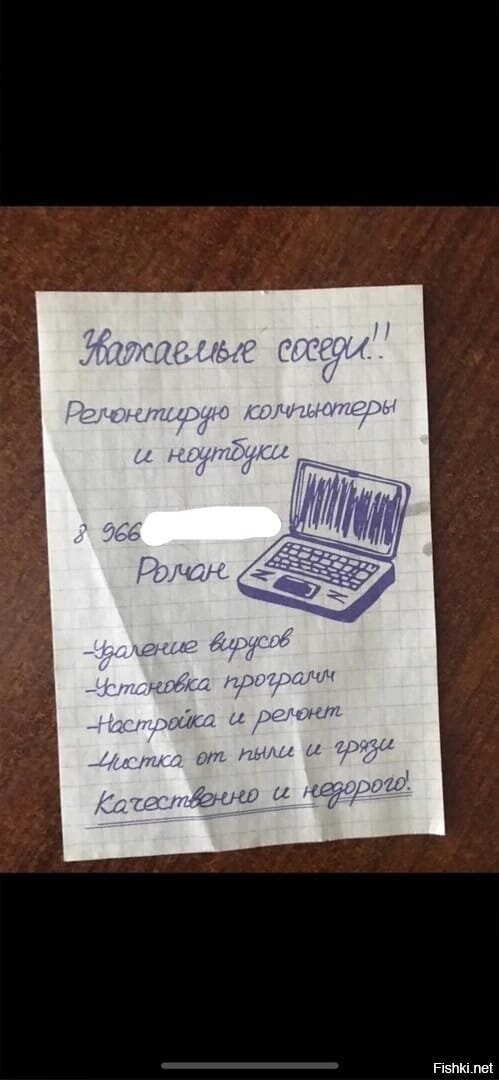 Уважаемые соседи!!
Ремонтирую компьютеры
и ноутбуки
8 966
Роман
-Удаление вирусов
-Установка программ
-Настройка и ремонт
-Чистка от пыли и грязи
Качественно и недорого!
Fishki.net